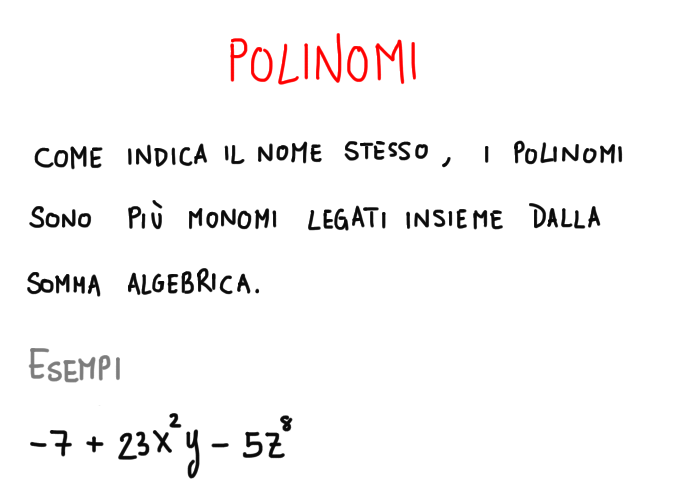 POLINOMI
COME INDICA IL NOME STESSO, I POLINOMI
SONO PIÙ MONOMI LEGATI INSIEME DALLA
SOMMA ALGEBRICA.
ESEMPI
-7 + 23x²y - 5z⁸